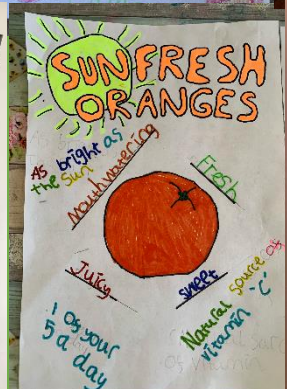 SUN FRESH
ORANGES
As bright as
the sun
Mouthwatering
Fresh
Juicy
sweet
1 of your
5 a day
Natural source of
vitamin "C"